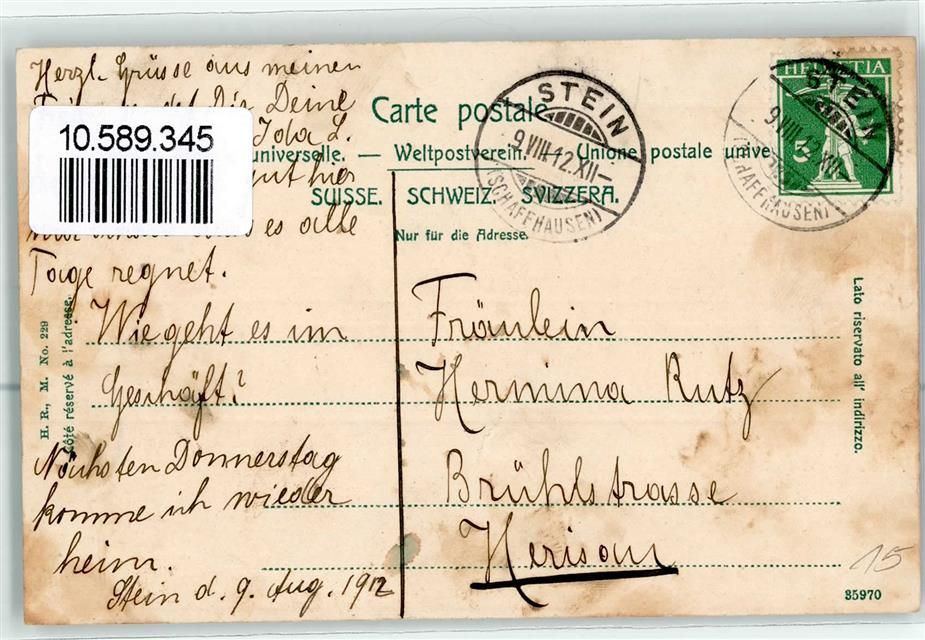 Herzl. Grüsse aus meinen
Dir Deine
Ida L.
10.589.345
gut hier
es alle
Tage regnet.
Wie geht es im
Geschäft?
Nächsten Donnerstag
komme ich wieder
heim.
Stein d. 9. Aug. 1912
Carte postale.
universelle. — Weltpostverein. — Unione postale unive
SUISSE. SCHWEIZ. SVIZZERA.
Nur für die Adresse.
STEIN
9.VIII.12.XII–
(SCHAFFHAUSEN)
HELVETIA
5
STEIN
9.VIII.12.XII–
(SCHAFFHAUSEN)
Fräulein
Hermina Rutz
Brühlstrasse
Herisau
H. R., M. No. 229
Côté réservé à l'adresse.
Lato riservato all' indirizzo.
15
35970